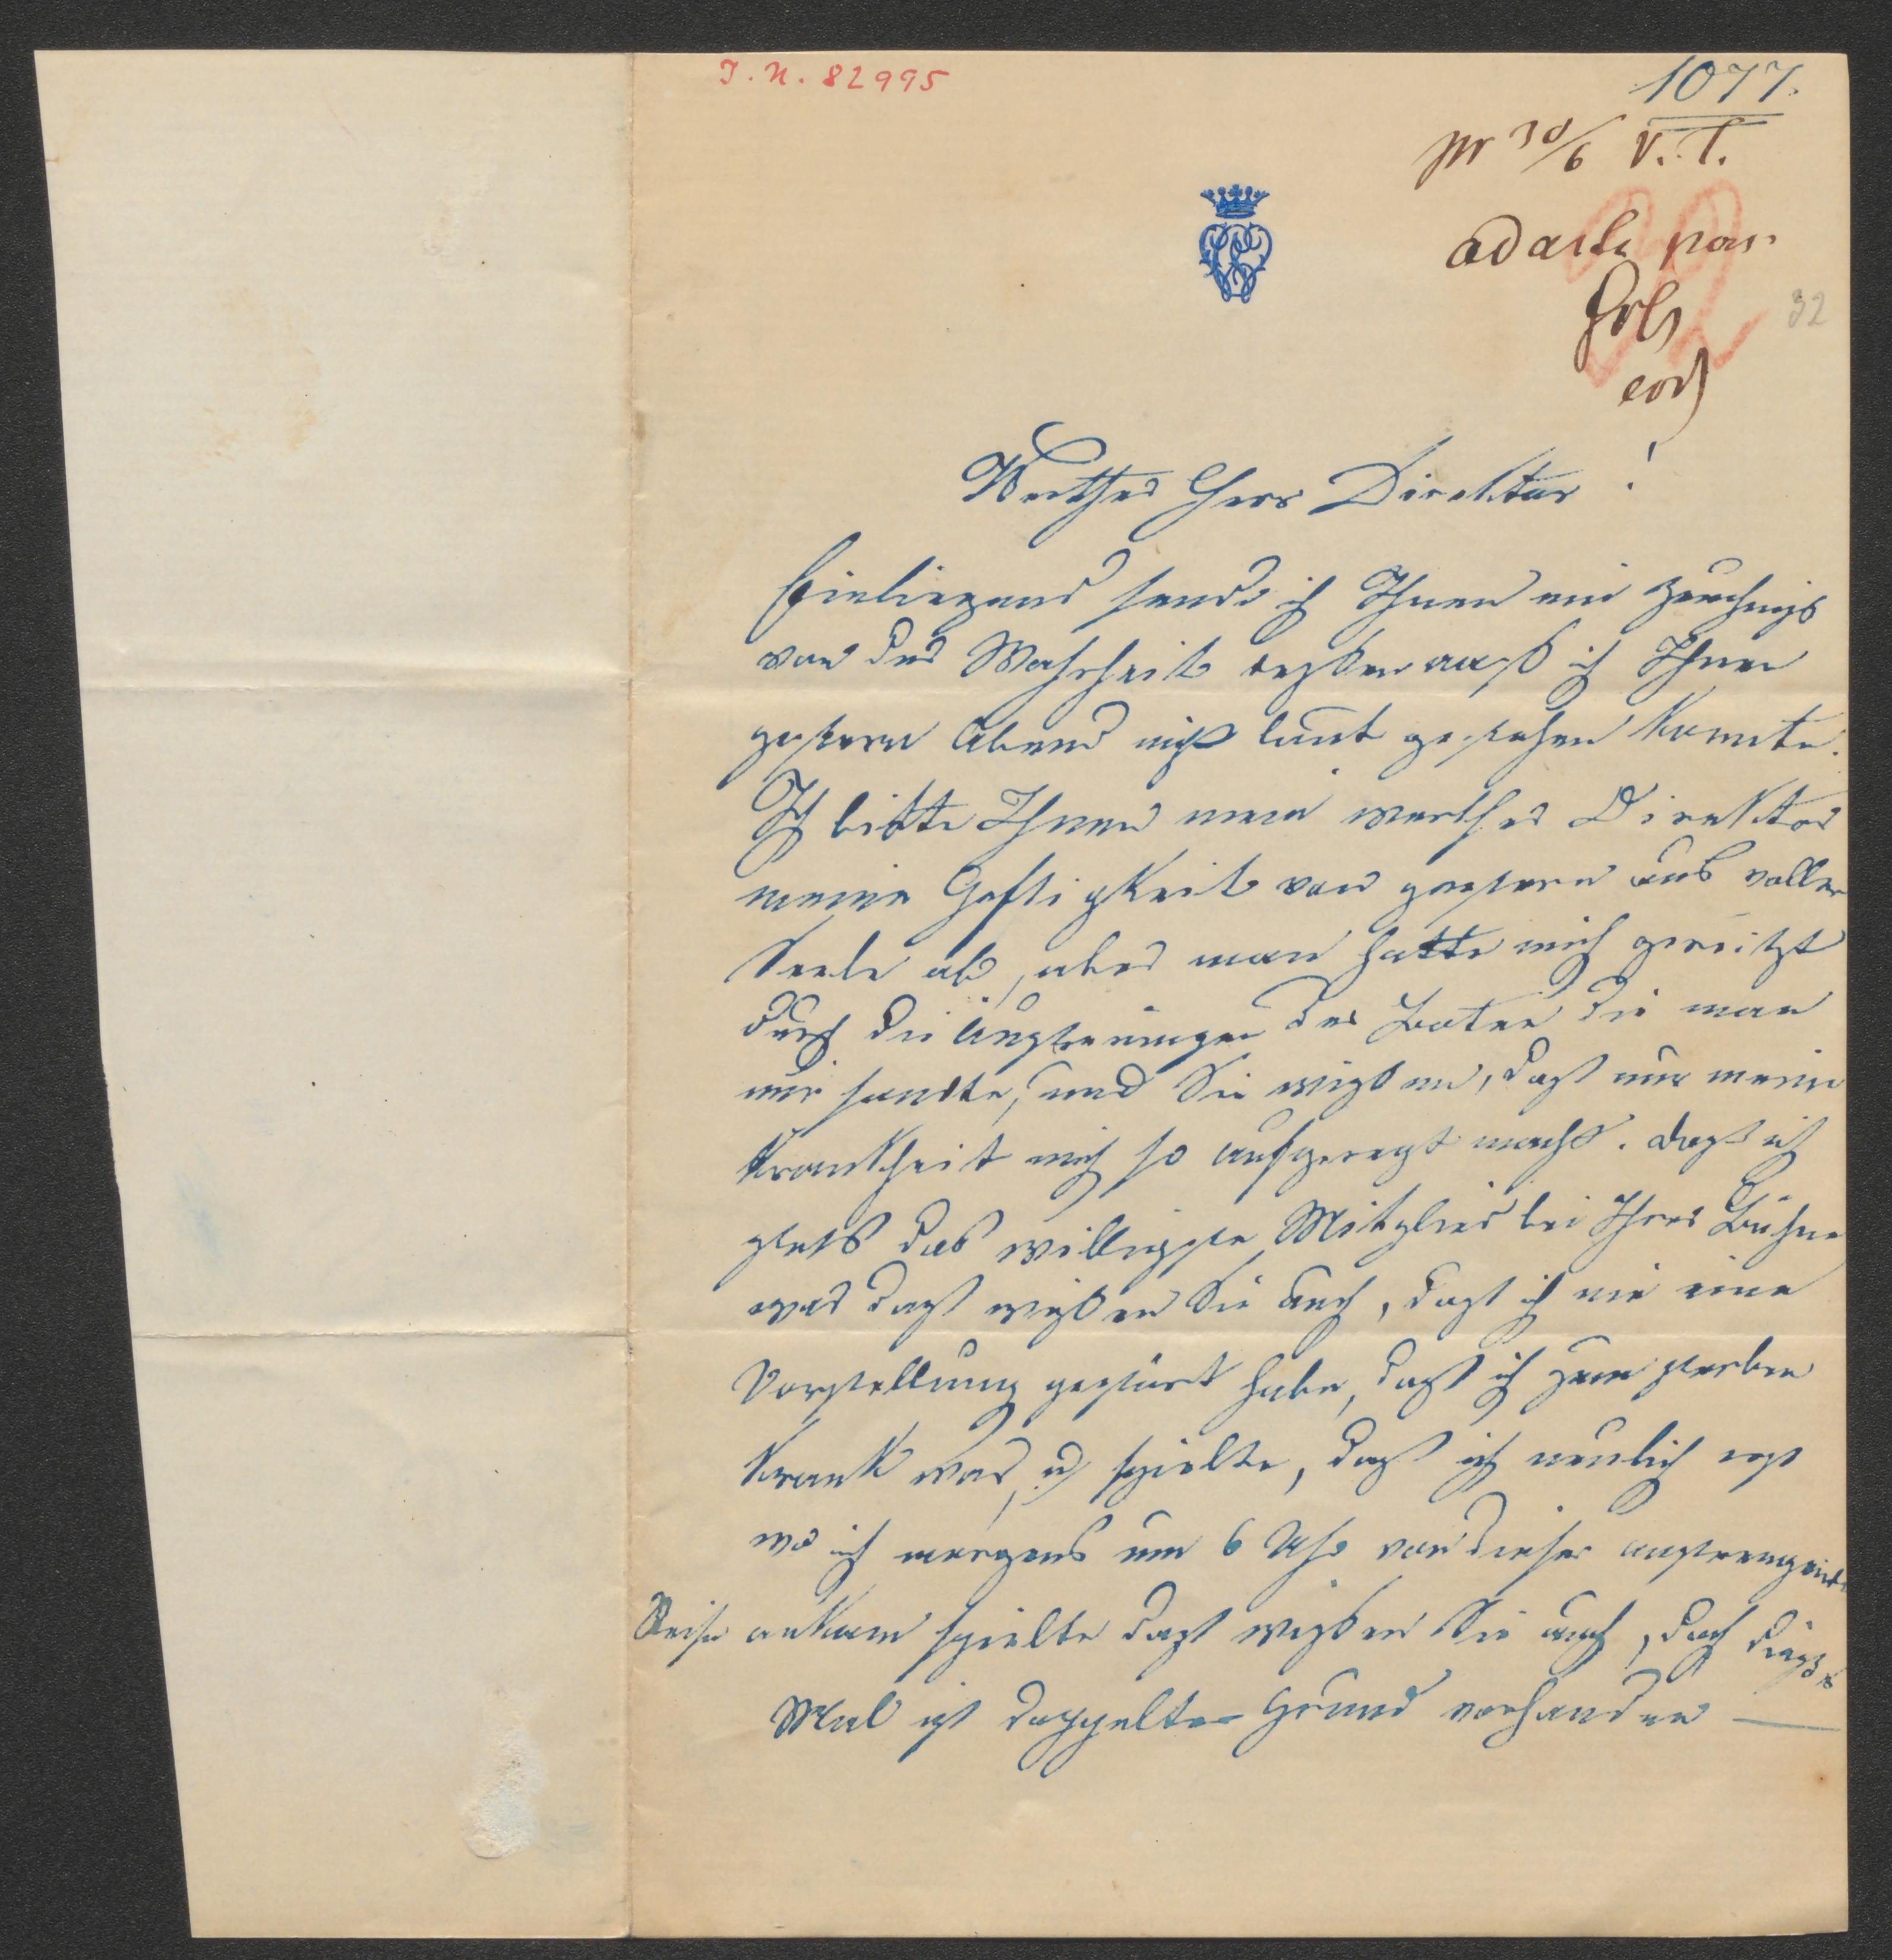 J. N. 82995
1077.
pr 30/6 V. T.
ad acta
32
Werther Herr Direktor!
Einliegend sende ich Ihnen ein Zeugniß
von der Wahrheit dessen was ich Ihnen
gestern Abend nicht laut gestehen konnte.
Ich bitte Ihnen mein werther Direktor
meine Heftigkeit von gestern aus voller
Seele ab, aber man hatte mich gereitzt
durch die Äußerungen der Boten die man
mir sandte, und Sie wißen, daß nur meine
Krankheit mich so aufgeregt macht. daß ich
stets das willigste Mitglied bei Ihrer Bühne
war daß wißen Sie auch, daß ich nie eine
Vorstellung gestört habe, daß ich zum sterben
krank war, u spielte, daß ich neulich erst
wo ich morgens um 6 Uhr von dieser anstrengenden
Reise ankam spielte daß wißen Sie auch, doch dießes
Mal ist doppelter Grund vorhanden —